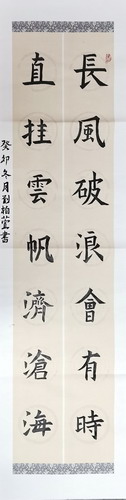 長風破浪會有時
直挂雲帆濟滄海
癸卯冬月劉柏萱書